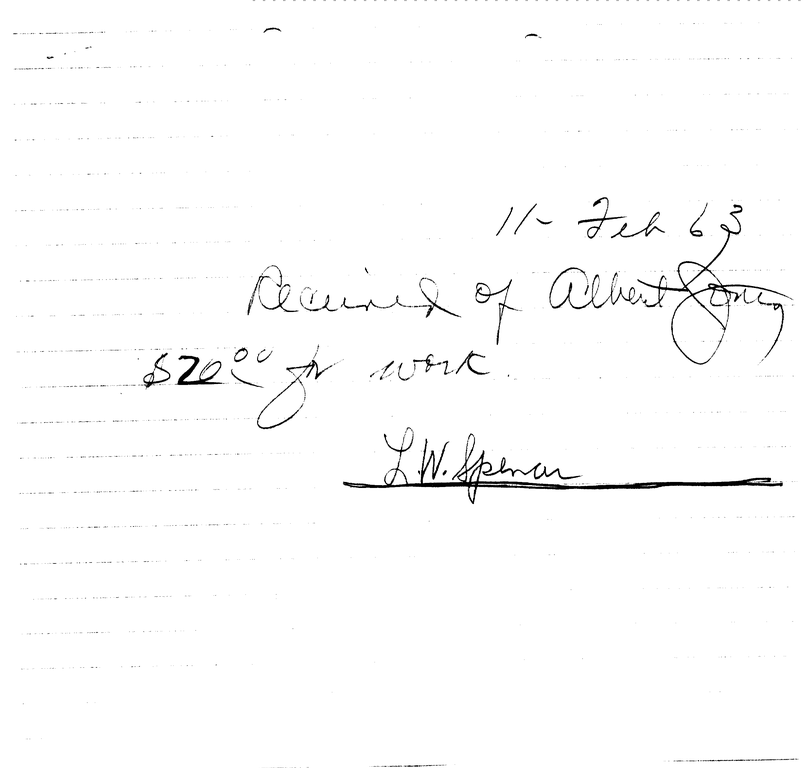 11- Feb 63
Received of Albert Jones
$20⁰⁰ for work.
L.W. Spencer